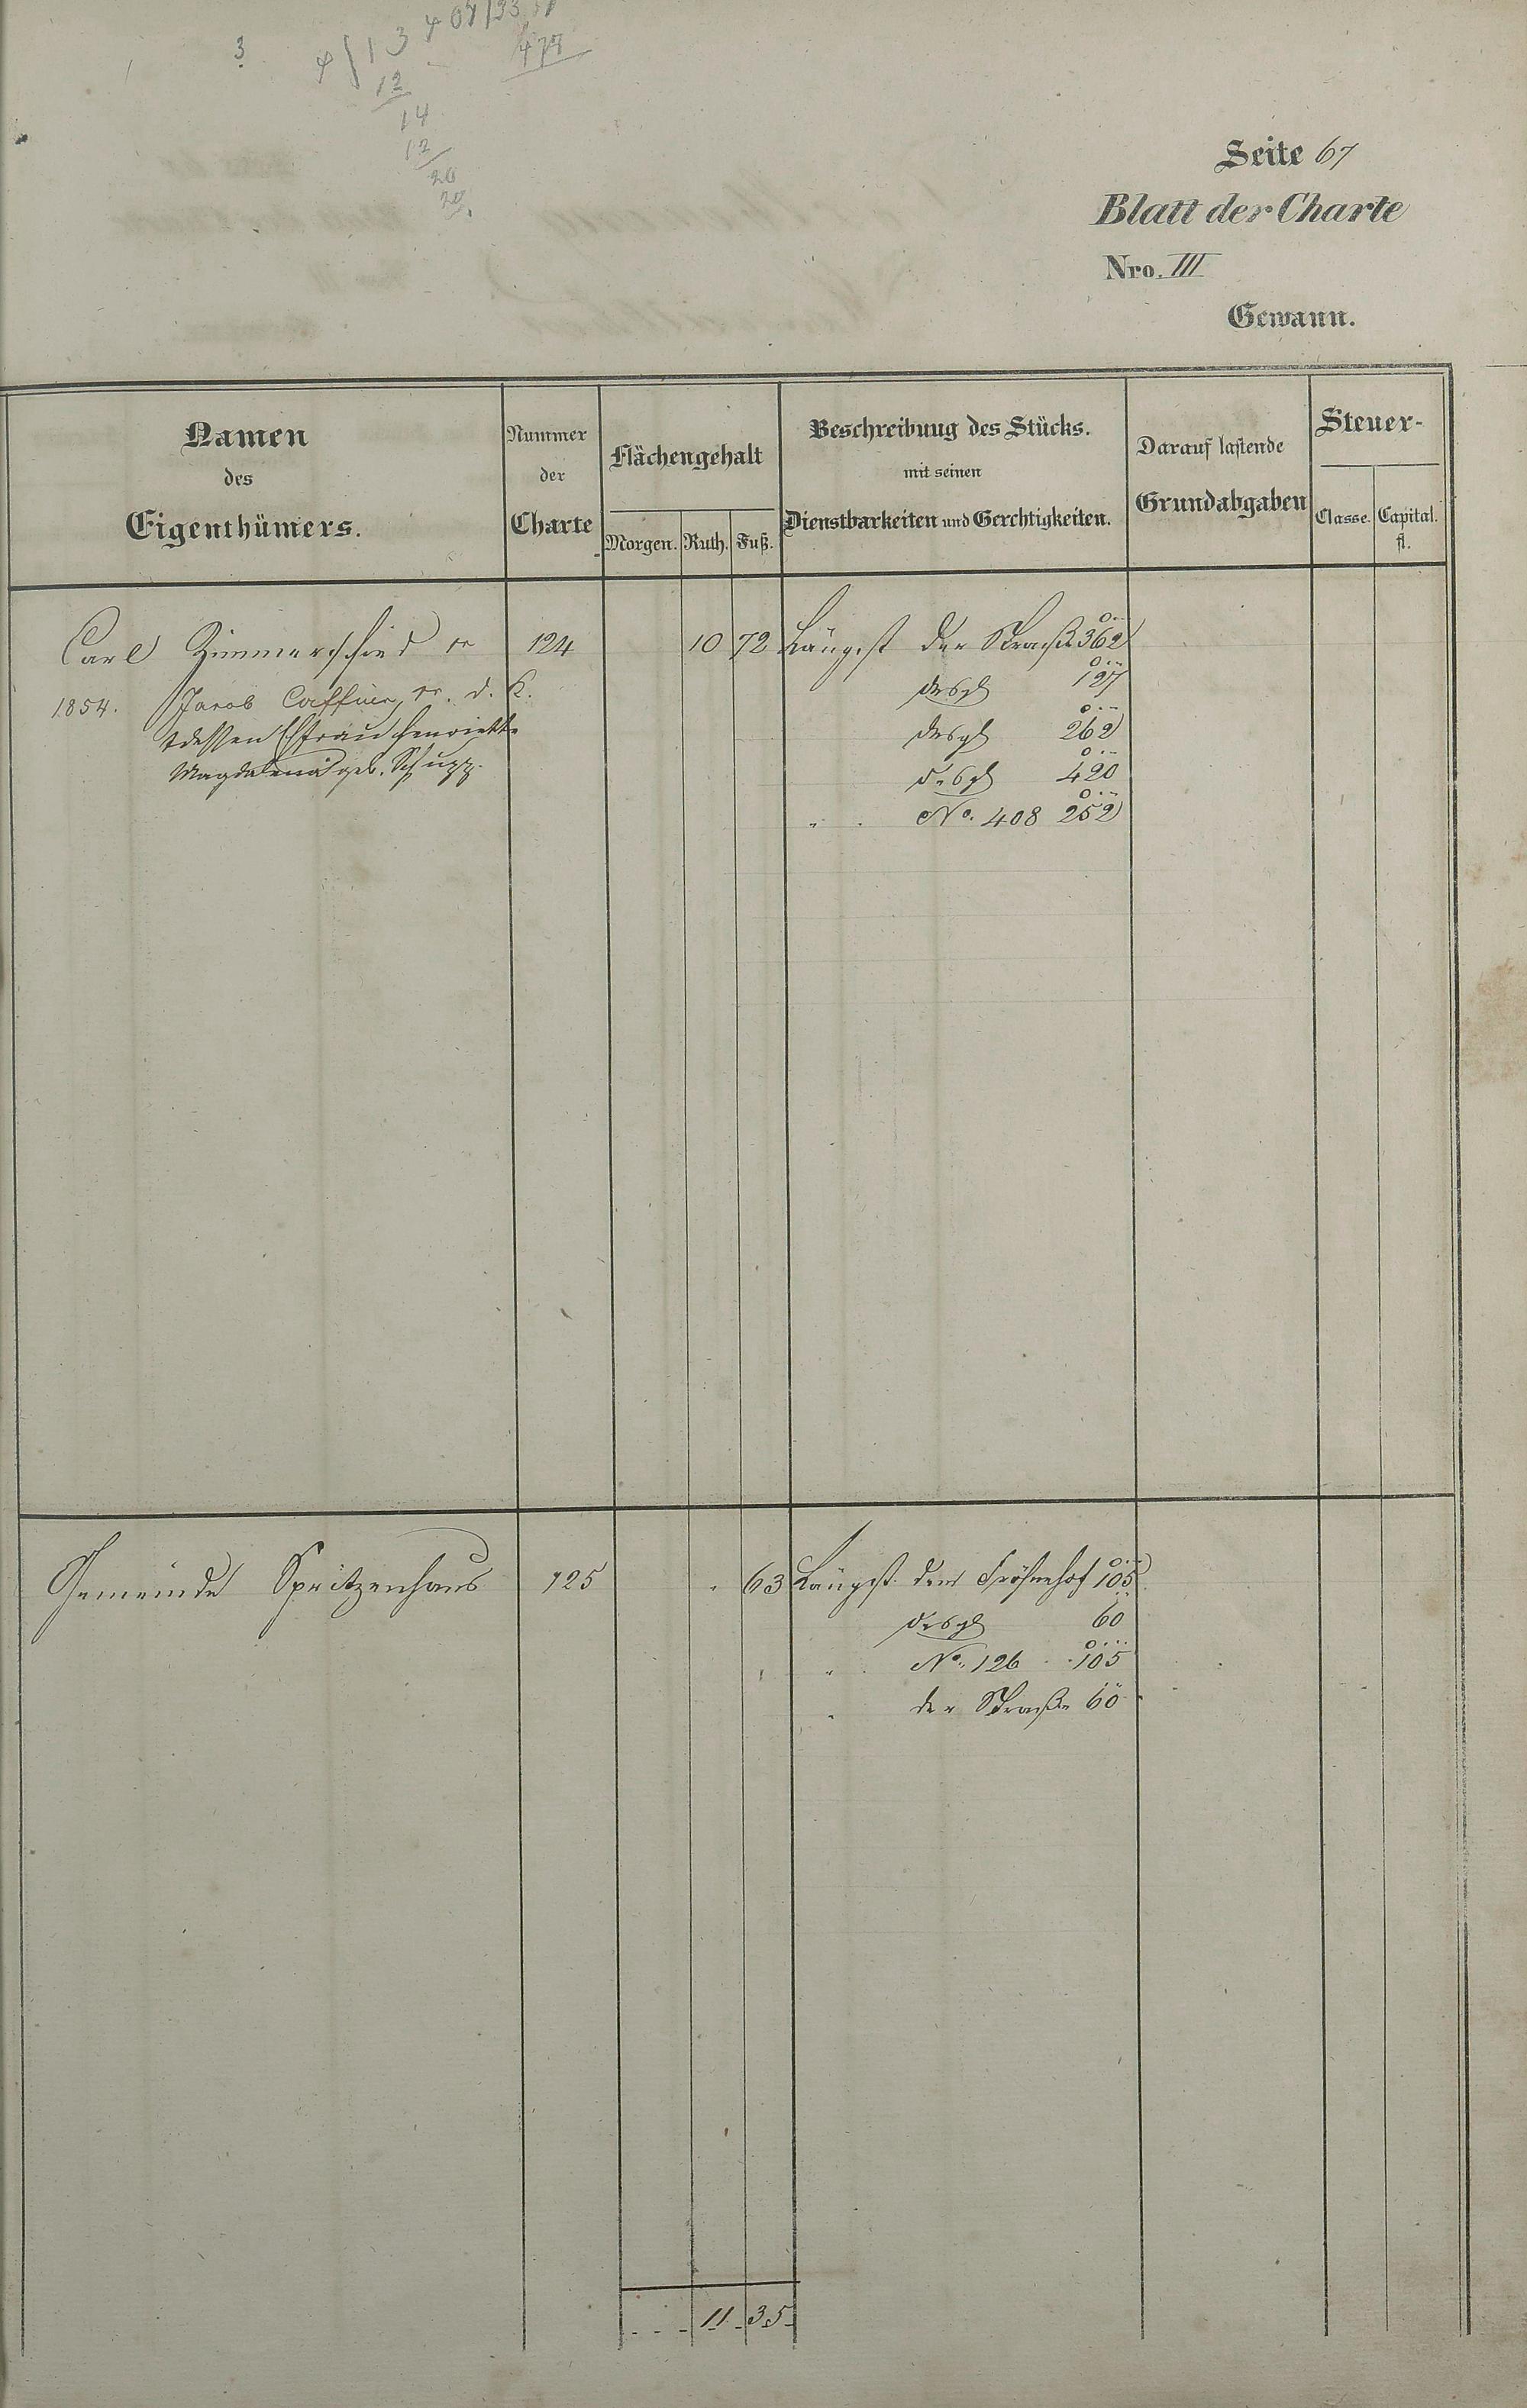 3
4 13
12
14
12
20
20
477
Seite 67
Blatt der Charte
Nro. III
Gewann.
Namen des Eigenthümers.
Nummer der Charte
Flächengehalt
Morgen. Ruth. Fuß.
Beschreibung des Stücks. mit seinen Dienstbarkeiten und Gerechtigkeiten.
Darauf lastende Grundabgaben
Steuer-
Classe. Capital. fl.
Carl Zimmerschied 124 10 72 Längst der Straße 362
1854. Jacob d. K. desgl 127
dessen Ehfrau Henriette desgl 262
Magdalena geb. Schupp. desgl 420
" No. 408 252
Gemeinde Spritzenhaus 125 63 Längst dem Fröhnehof 105
desgl 60
" No. 126 105
" der Straße 60
11 35